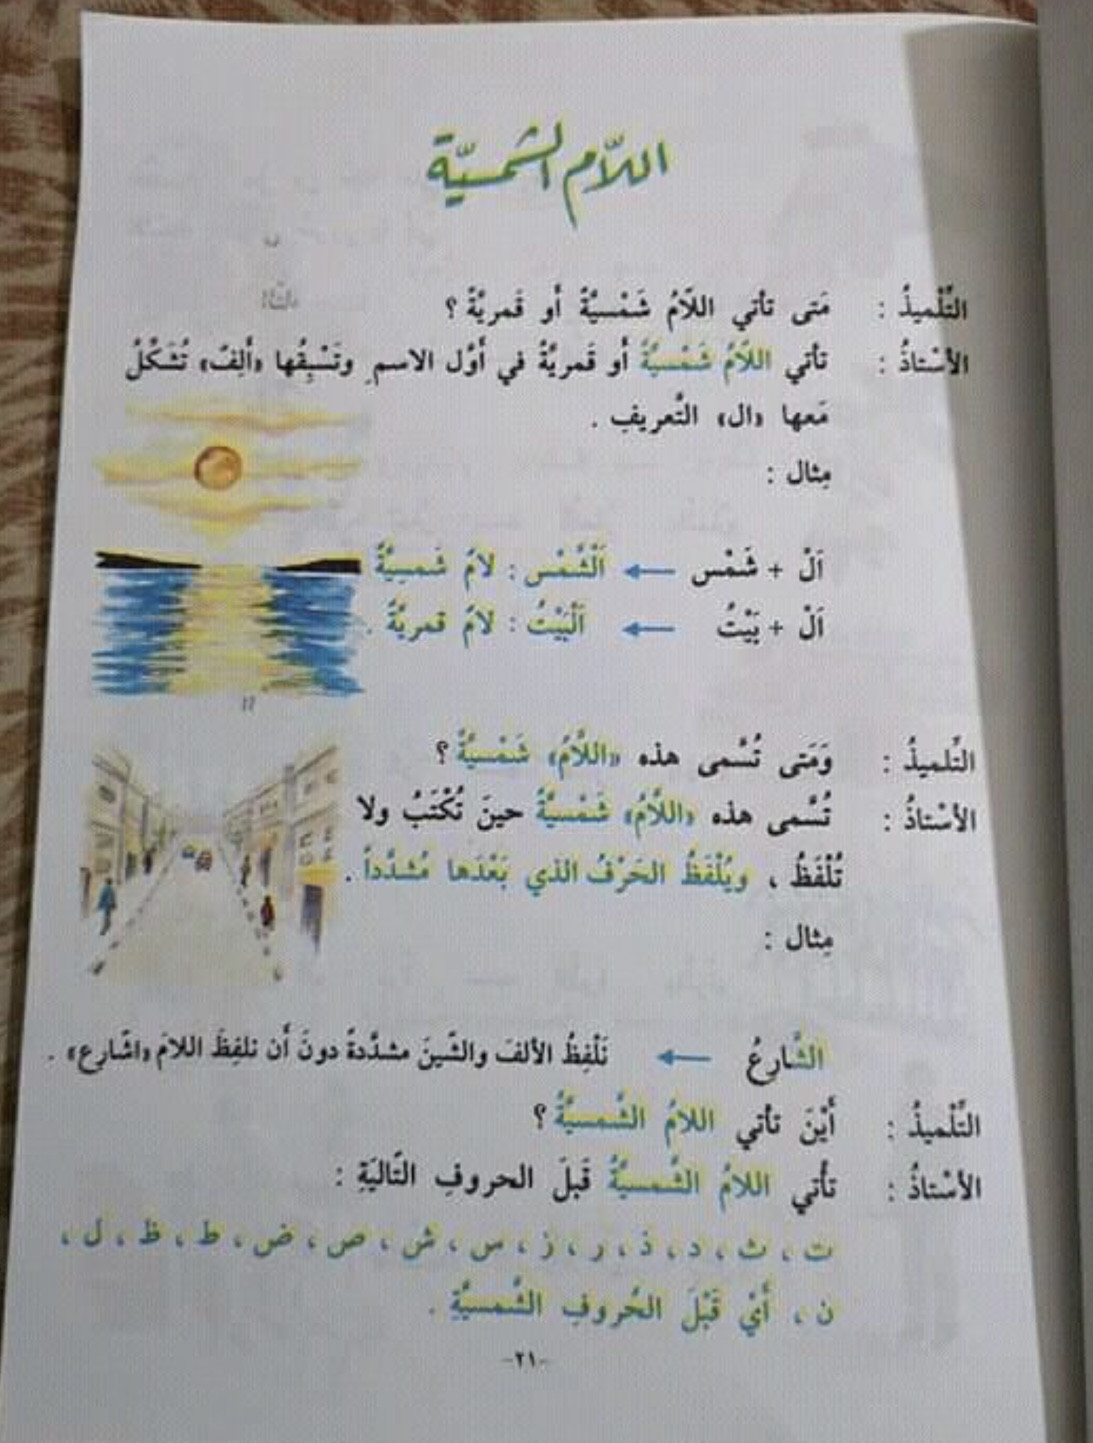 اللاّم الشمسيّة
التِّلْميذُ : مَتى تأتي اللاّمُ شَمْسيَّةً أو قَمريَّةً ؟
الأسْتاذُ : تأتي اللاّمُ شَمْسيَّةً أو قَمريَّةً في أوَّل الاسم وتَسْبِقُها «ألِفٌ» تُشَكِّلُ
مَعها «ال» التَّعريف .
مِثال :
اَلْ + شَمْس ← اَلْشَّمْس : لامٌ شَمسِيَّةٌ
اَلْ + بَيْتُ ← اَلْبَيْتُ : لامٌ قمريَّةٌ .
التِّلميذُ : وَمَتى تُسَّمى هذه «اللَّامُ» شَمْسيَّةً ؟
الأسْتاذُ : تُسَّمى هذه «اللَّامُ» شَمْسيَّةً حينَ تُكْتَبُ ولا
تُلْفَظُ ، ويُلْفَظُ الحَرْفُ الذي بَعْدَها مُشدَّداً .
مِثال :
الشَّارِعُ ← نَلْفِظُ الألفَ والشّينَ مشدَّدةً دونَ أَن نلفِظَ اللامَ «اشّارع» .
التِّلْميذُ : أَيْنَ تأتي اللامُ الشَّمسيَّةُ ؟
الأسْتاذُ : تأتي اللامُ الشَّمسيَّةُ قَبلَ الحروفِ التّاليَةِ :
ت ، ث ، د ، ذ ، ر ، ز ، س ، ش ، ص ، ض ، ط ، ظ ، ل ،
ن ، أَيْ قَبْلَ الحُروفِ الشَّمسيَّةِ .
-٢١-